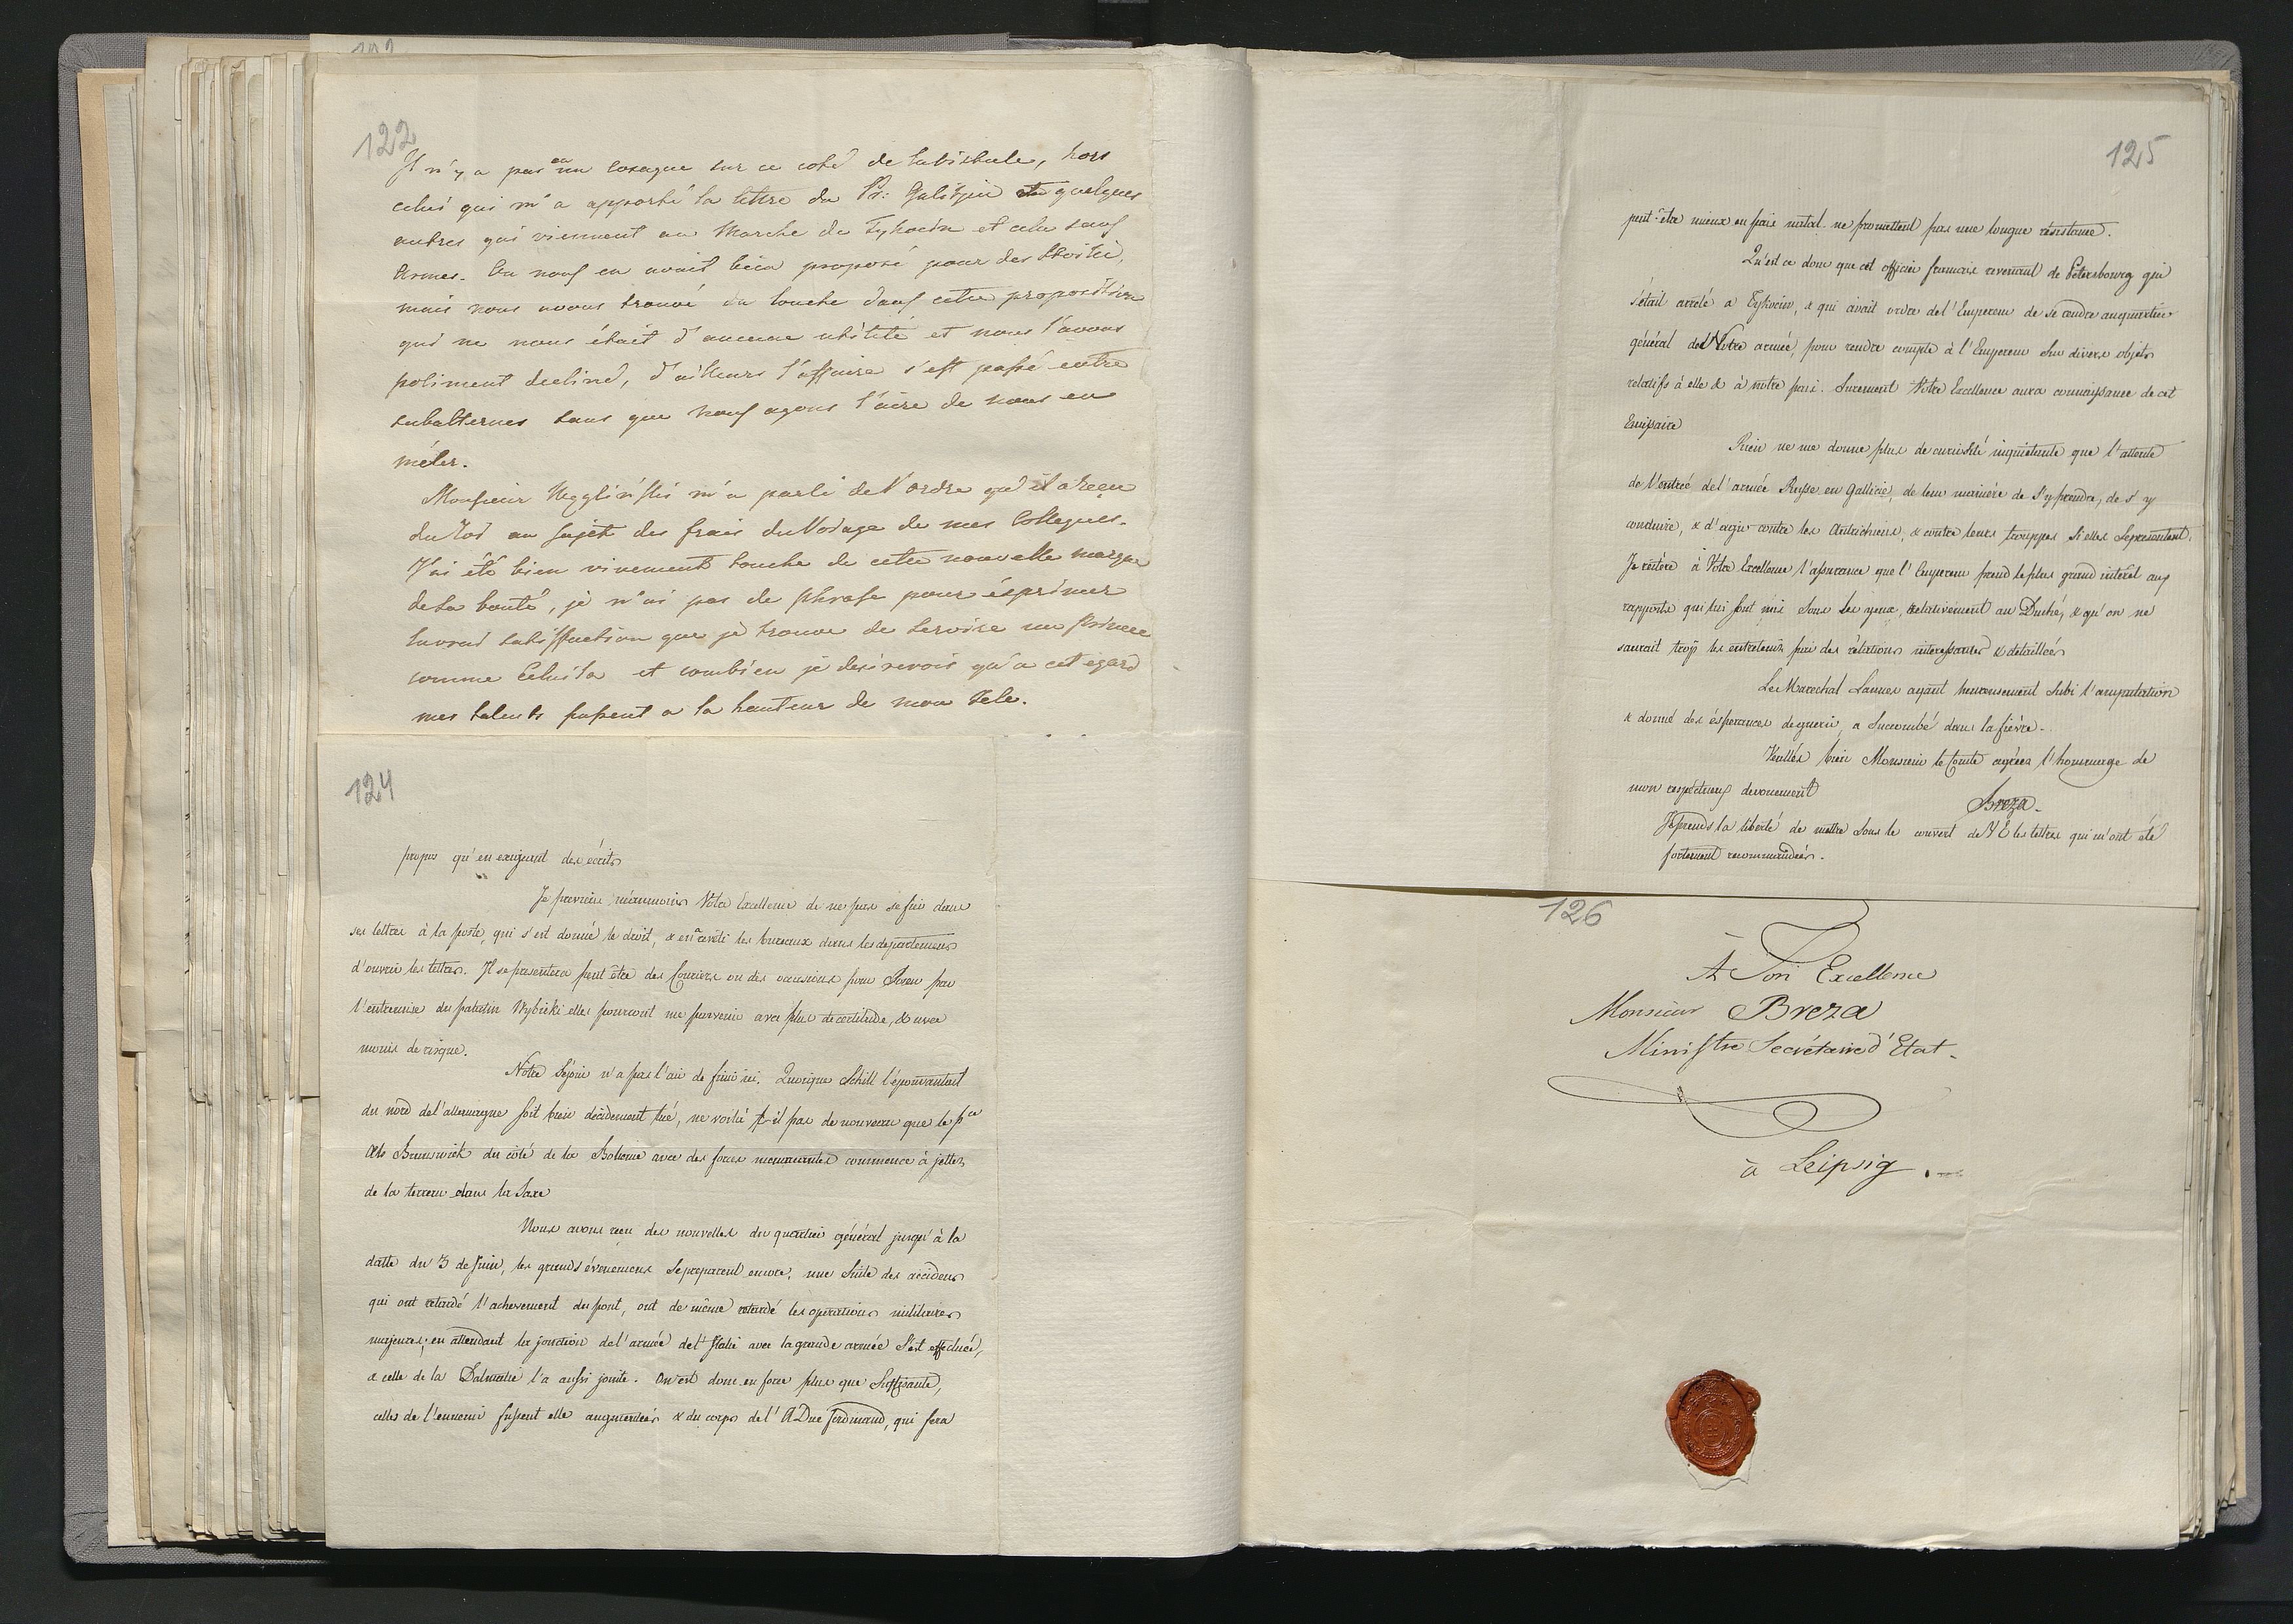 122
Il n'y a pas eu un cosaque sur ce coté de la Vistule, hors
celui qui m'a apporté la lettre du Pr: Galitzin et quelques
autres qui viennent au Marche de Tykocin et cela sans
Armes. On nous en avait bien proposé pour des
mais nous avons trouvé du louche dans cette proposition
qui ne nous était d'aucune utilité et nous l'avons
poliment decliné, d'ailleurs l'affaire s'est passé entre
subalternes sans que nous ayons l'aire de nous en
méler.
Monsieur m'a parlé de l'ordre qu'il a reçu
du Roi au sujet des frais du Voiage de mes Collegues.
J'ai été bien vivement touché de cette nouvelle marque
de Sa bonté, je n'ai pas de phrase pour éxprimer
la vraie satisfaction que je trouve de servire un Prince
comme Celui la et combien je desirerois qu'a cet egard
mes talents fussent a la hauteur de mon Zele.
124
propos qu'en exigeant des écrits
Je previens néanmoins Votre Excellence de ne pas se fier dans
ses lettres à la poste, qui s'est donné le droit, & en a revêti les bureaux dans les departemens
d'ouvrir les lettres. Il se presentera peut être des Couriers ou des occasions pour par
l'entremise du palatin Wybicki elles pourront me parvenir avec plus de certitude, & avec
moins de risque.
Notre Séjour n'a pas l'air de finir ici. Quoique Schill l'épouvantail
du nord de l'allemagne soit bien décidement tué, ne voilà t-il pas de nouveau que le pce
Als Brunswick du côté de la Boheme avec des forces menacantes commence à jetter
de la terreur dans la Saxe
Nous avons reçu des nouvelles du quartier général jusqu'à la
datte du 3 de Juin, les grands évenemens se preparent encore, une suite des accidens
qui ont retardé l'achevement du pont, ont de même retardé les opérations militaires
majeures; en attendant la jonction de l'armée de l'Italie avec la grande armée s'est effectuée,
& celle de la Dalmatie l'a aussi jointe. On est donc en force plus que suffisante,
celles de l'ennemi fussent elle augmentées & du corps de l'A Duc Ferdinand, qui sera
125
peut-être mieux en païs natal ne promettent pas une longue résistance.
Qu'est ce donc que cet officier francais revenant de Petersbourg qui
s'était arrêté a Tykocin, & qui avait ordre de l'Empereur de se rendre au quartier
général de Votre armée, pour rendre compte à l'Empereur sur divers objets
relatifs à elle & à notre païs. Surement Votre Excellence aura connaissance de cet
Emissaire
Rien ne me donne plus de curiosité inquietante que l'attente
de l'entrée de l'armée Russe en Gallicie, de leur maniere de s'y prendre, de s'y
conduire, & d'agir contre les Autrichiens, & contre leurs trouppes si elles se presentent.
Je réitère à Votre Excellence l'assurance que l'Empereur prend le plus grand interêt aux
rapports qui lui sont mis sous les yeux, relativement au Duché, & qu'on ne
saurait trop les entretenir par des rélations interessantes & détaillées
Le Marechal Lannes ayant heureusement subi l'amputation
& donné des ésperances de guerir, a succombé dans la fièvre.
Veuillés bien Monsieur le Comte agréer l'hommage de
mon respectueux devouement
Breza
Je prends la liberté de mettre sous le couvert de V E les lettres qui m'ont été
fortement recommandées.
126
A Son Excellence
Monsieur Breza
Ministre Secrétaire d'Etat
à Leipsig.